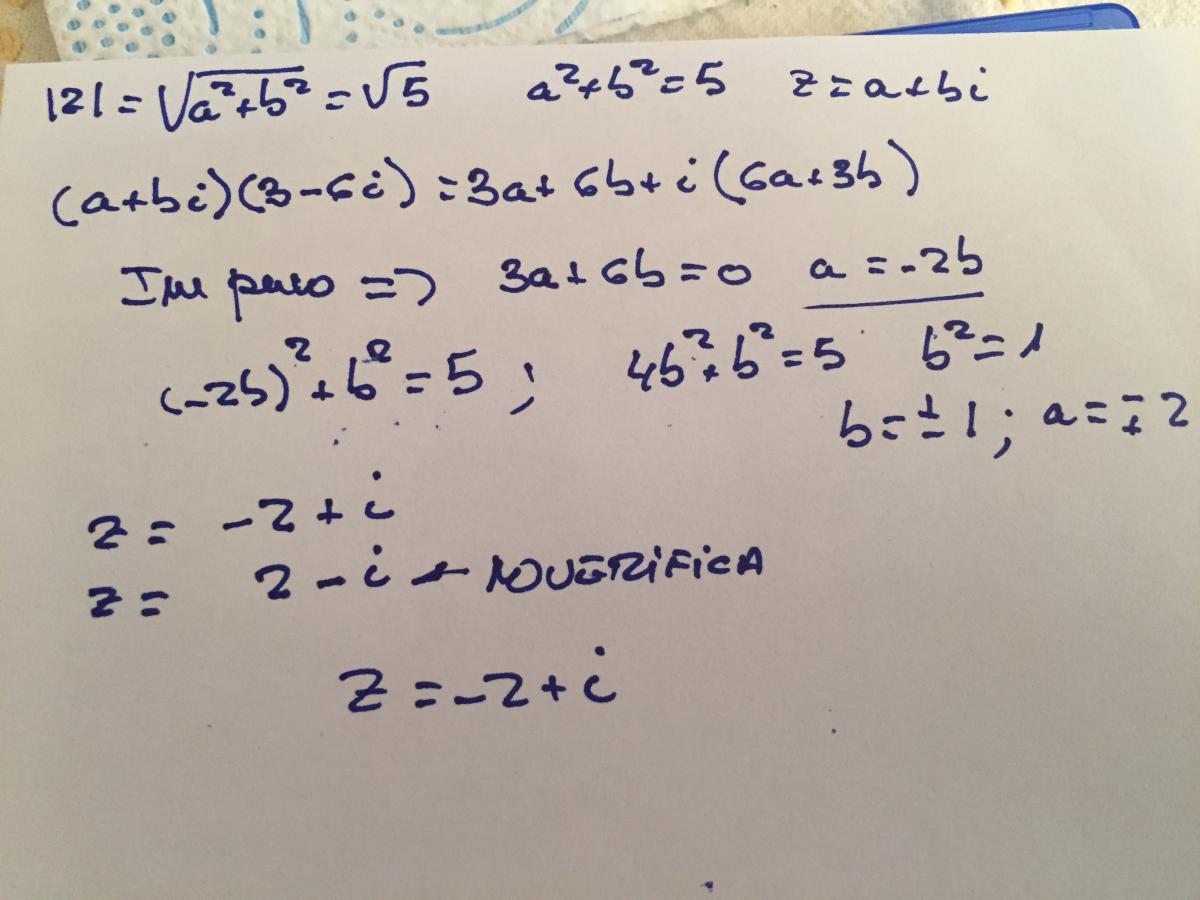 |z| = √a²+b² = √5 a²+b²=5 z=a+bi
(a+bi)(3-6i) = 3a+6b+i(6a+3b)
Im puro => 3a+6b=0 a=-2b
(-2b)²+b²=5; 4b²+b²=5 b²=1
b=±1; a=∓2
z= -2+i
z= 2-i ← NO VERIFICA
z=-2+i